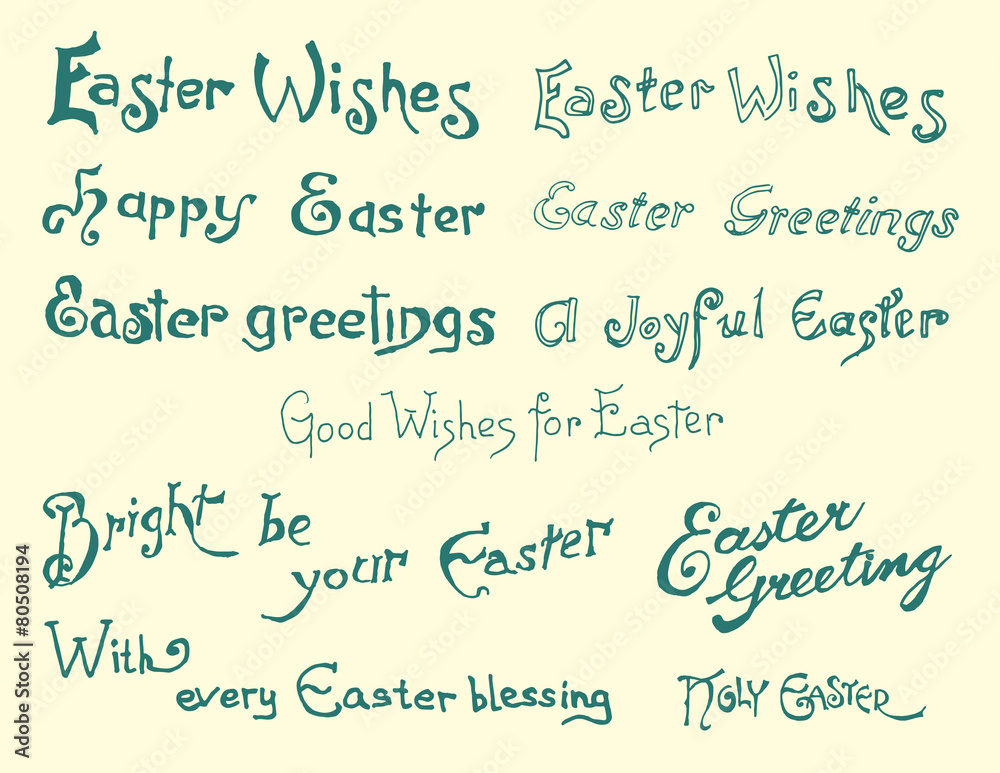 Easter Wishes
Easter Wishes
Happy Easter
Easter Greetings
Easter greetings
A Joyful Easter
Good Wishes for Easter
Bright be
your Easter
Easter
Greeting
With
every Easter blessing
Holy Easter
Adobe Stock | #80508194